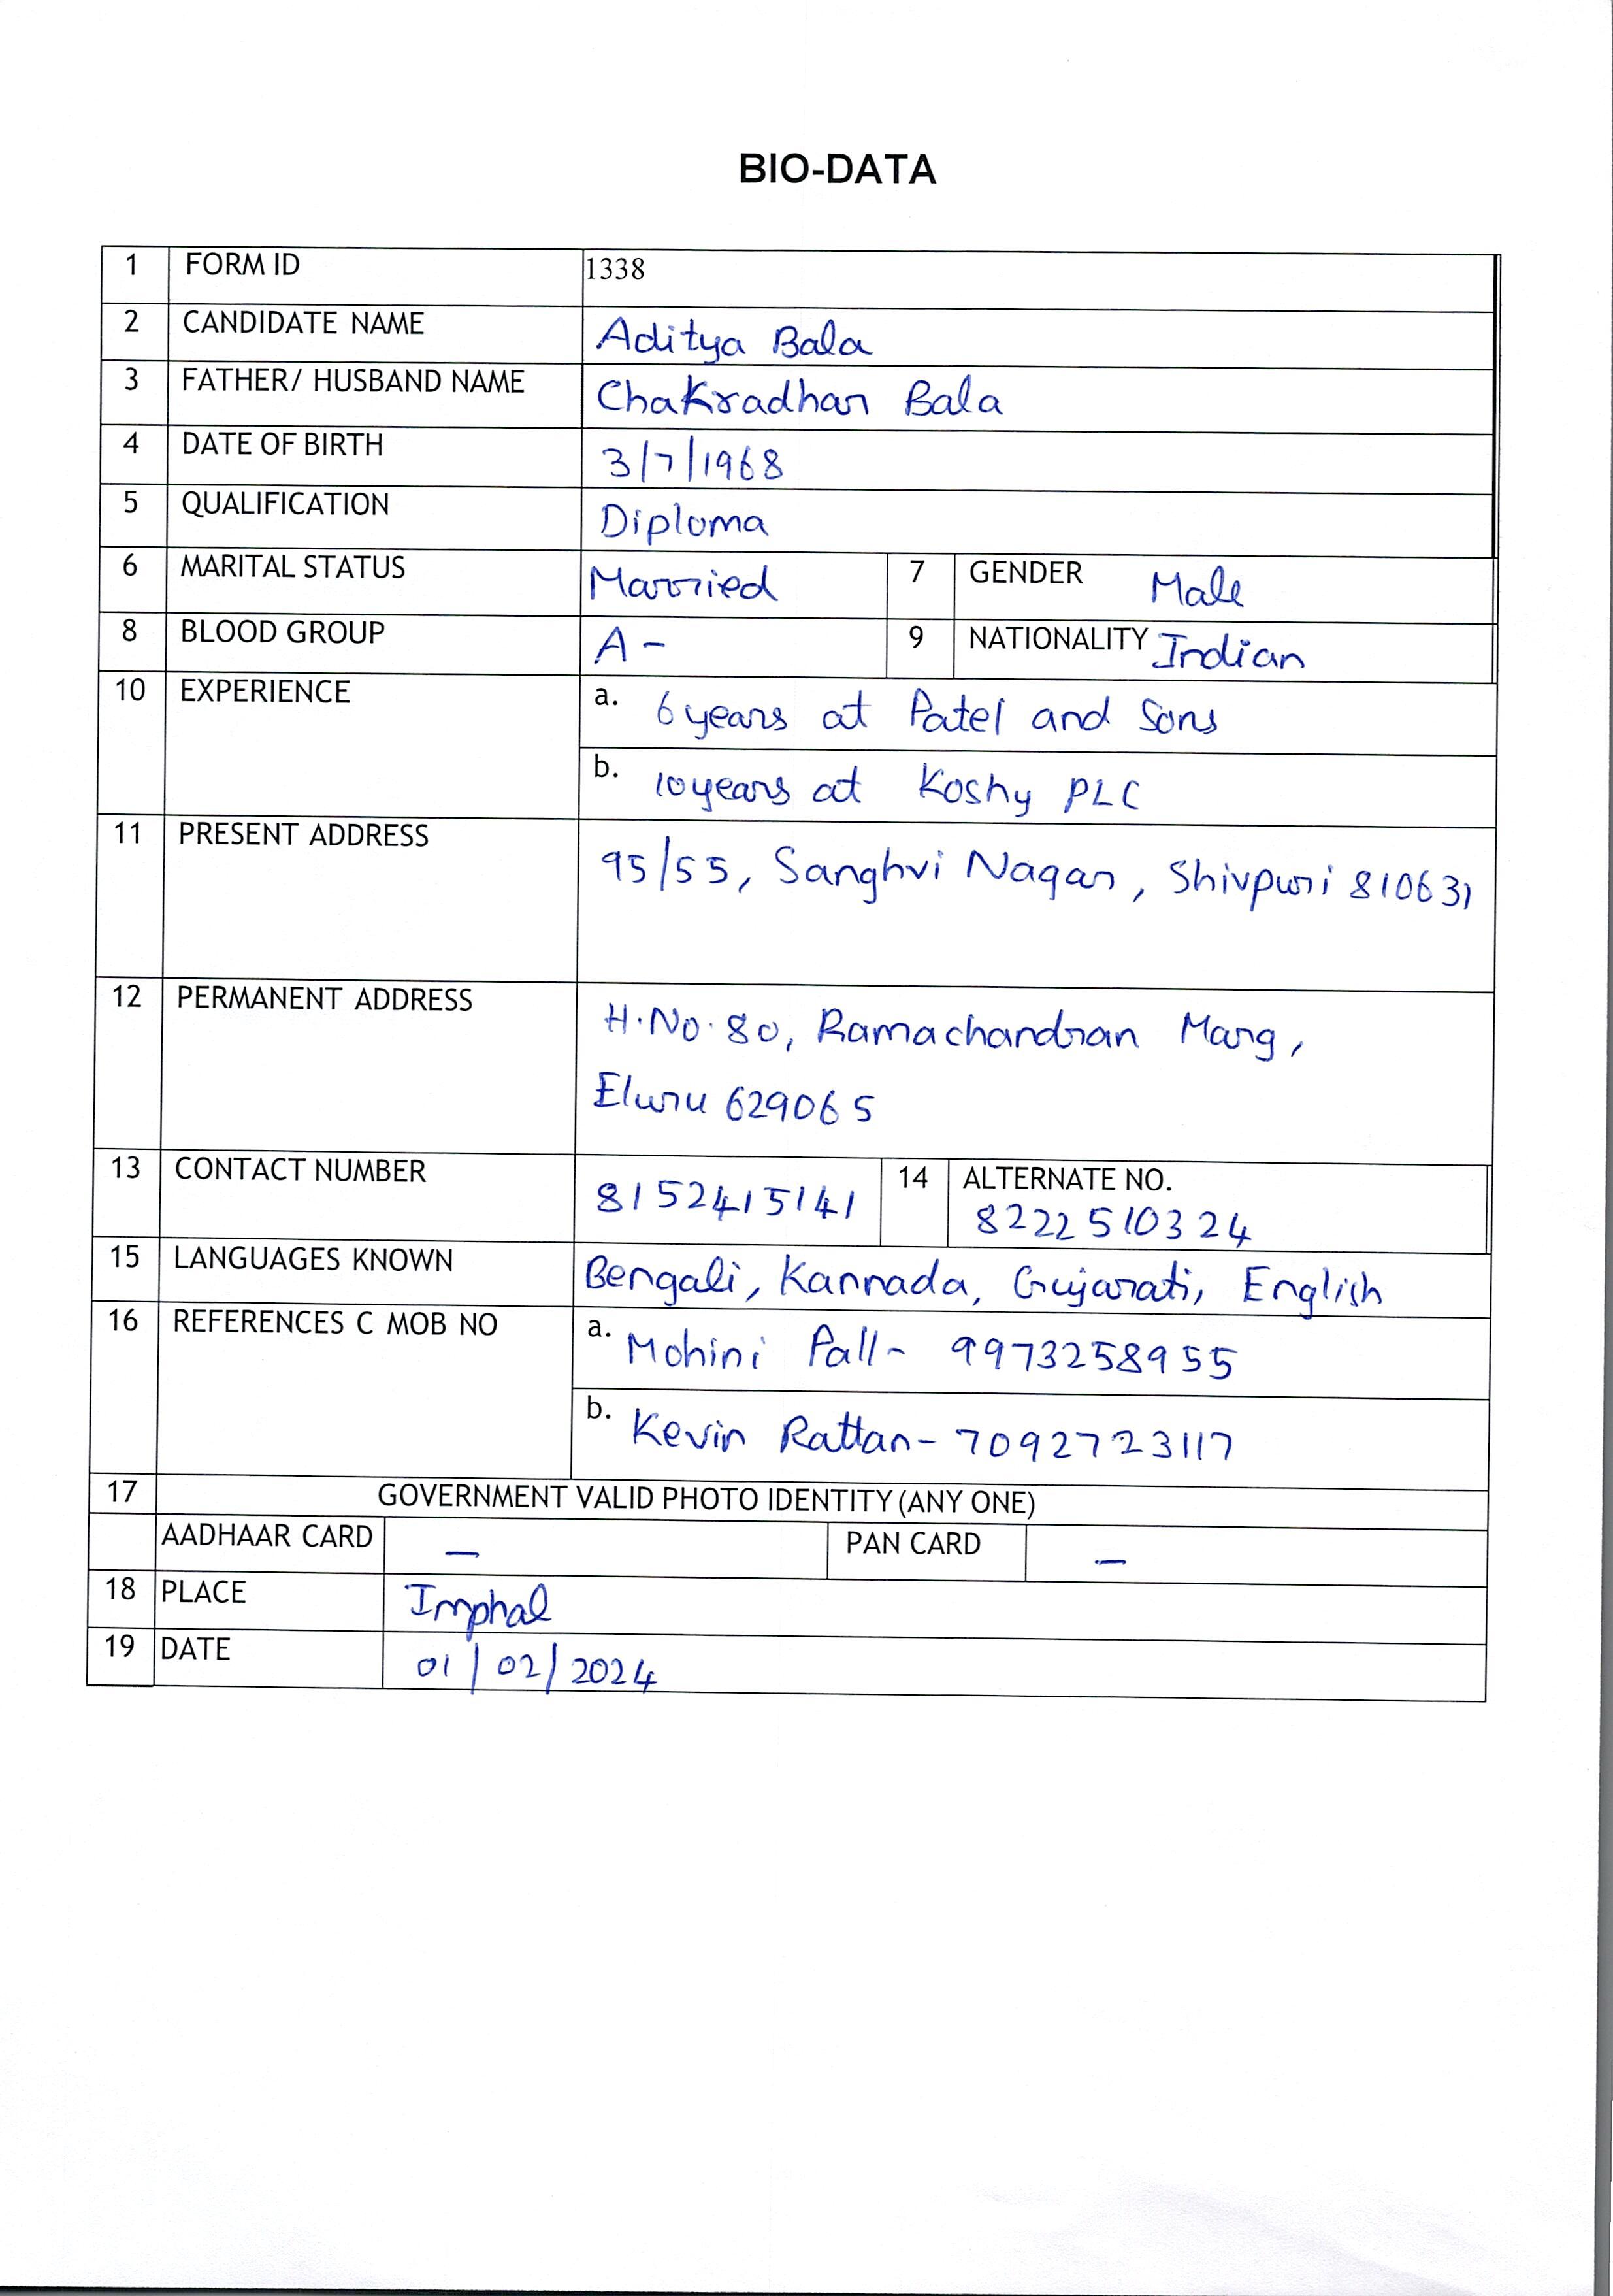 BIO-DATA
1 FORM ID 1338
2 CANDIDATE NAME Aditya Bala
3 FATHER/ HUSBAND NAME Chakradhar Bala
4 DATE OF BIRTH 3/7/1968
5 QUALIFICATION Diploma
6 MARITAL STATUS Married 7 GENDER Male
8 BLOOD GROUP A- 9 NATIONALITY Indian
10 EXPERIENCE a. 6 years at Patel and Sons
b. 10 years at Koshy PLC
11 PRESENT ADDRESS 95/55, Sanghvi Nagar, Shivpuri 810631
12 PERMANENT ADDRESS H.No. 80, Ramachandran Marg,
Eluru 629065
13 CONTACT NUMBER 8152415141 14 ALTERNATE NO.
8222510324
15 LANGUAGES KNOWN Bengali, Kannada, Gujarati, English
16 REFERENCES C MOB NO a. Mohini Pall- 9973258955
b. Kevin Rattan- 7092723117
17 GOVERNMENT VALID PHOTO IDENTITY (ANY ONE)
AADHAAR CARD - PAN CARD -
18 PLACE Imphal
19 DATE 01/02/2024